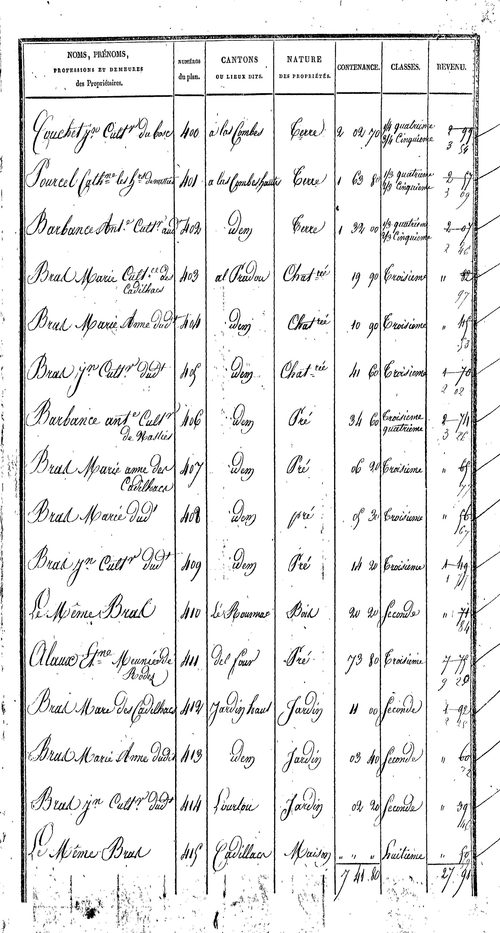 NOMS, PRÉNOMS, PROFESSIONS ET DEMEURES des Propriétaires. | NUMÉROS du plan. | CANTONS OU LIEUX DITS. | NATURE DES PROPRIÉTÉS. | CONTENANCE. | CLASSES. | REVENU.
Couchet jn Cultr du bosc 400 a las Combes Terre 2 02 70 1/4 quatrieme 3/4 Cinquieme 2 99 3 54
Pourcel Cathne les hrs 401 a las Combes hautes Terre 1 63 80 1/3 quatrieme 2/3 Cinquieme 2 57 3 09
Barbance Ante Cultr 402 idem Terre 1 32 00 1/3 quatrieme 2/3 Cinquieme 2 07 2 46
Bras Marie Cultce de Cadilhac 403 al Pradou Chatrée 19 90 Troisieme " 82 97
Bras Marie Anne dudt 404 idem Chatrée 10 90 Troisieme " 45 53
Bras jn Cultr dudt 405 idem Chatrée 41 60 Troisieme 1 70 2 02
Barbance ante Cultr de Nastiés 406 idem Pré 34 60 Troisieme quatrieme 2 74 3 26
Bras Marie anne des Cadilhacs 407 idem Pré 06 20 Troisieme " 65 77
Bras Marie dudt 408 idem pré 05 30 Troisieme " 56 67
Bras jn Cultr dudt 409 idem Pré 14 20 Troisieme 1 49 1 77
Le Même Bras 410 Le Roumac Bois 20 20 Seconde " 71 84
Alaux Etne Meunier de Rodez 411 del four Pré 73 80 Troisieme 7 75 9 20
Bras Marie des Cadilhacs 412 Jardin haut Jardin 11 00 Seconde 1 92 2 28
Bras Marie Anne dudt 413 idem Jardin 03 40 Seconde " 60 72
Bras jn Cultr dudt 414 Lourtou Jardin 02 20 Seconde " 39 46
Le Même Bras 415 Cadillacs Maison " " " huitieme " 50
7 41 80 27 91